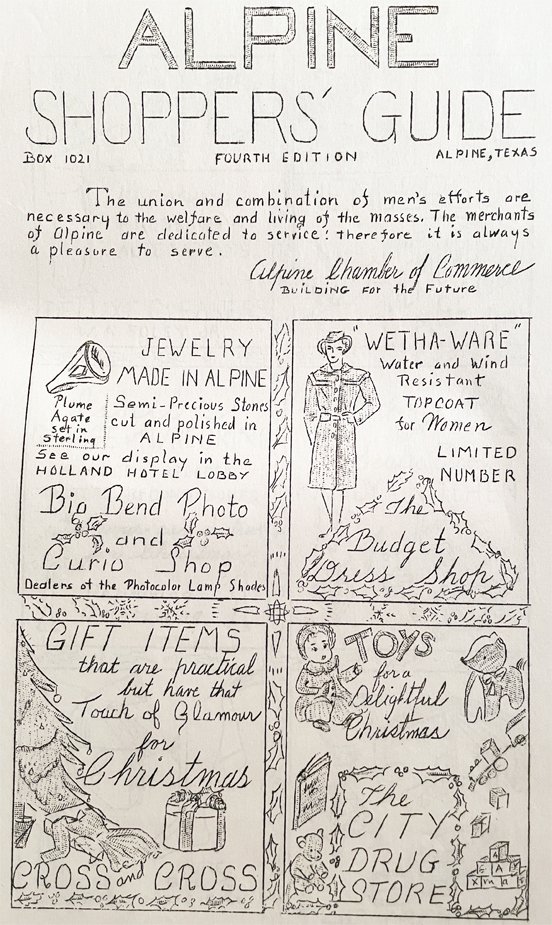 ALPINE
SHOPPERS' GUIDE
BOX 1021 FOURTH EDITION ALPINE, TEXAS
The union and combination of men's efforts are
necessary to the welfare and living of the masses. The merchants
of Alpine are dedicated to service: therefore it is always
a pleasure to serve.
Alpine Chamber of Commerce
BUILDING FOR the FUTURE
JEWELRY
MADE IN ALPINE
Plume
Agate
set in
Sterling
Semi-Precious Stones
cut and polished in
ALPINE
See our display in the
HOLLAND HOTEL LOBBY
Big Bend Photo
and
Curio Shop
Dealers of the Photocolor Lamp Shades
"WETHA-WARE"
Water and Wind
Resistant
TOPCOAT
for Women
LIMITED
NUMBER
The
Budget
Dress Shop
GIFT ITEMS
that are practical
but have that
Touch of Glamour
for
Christmas
CROSS and CROSS
TOYS
for a
Delightful
Christmas
The
CITY
DRUG
STORE
A
C A Y
X m a s